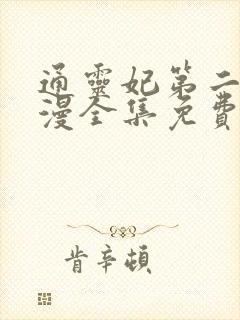 通靈妃第二
漫全集免費
肯辛頓